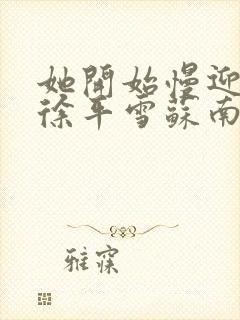 她開始慢迎
徐年雪蘇南
雅寐